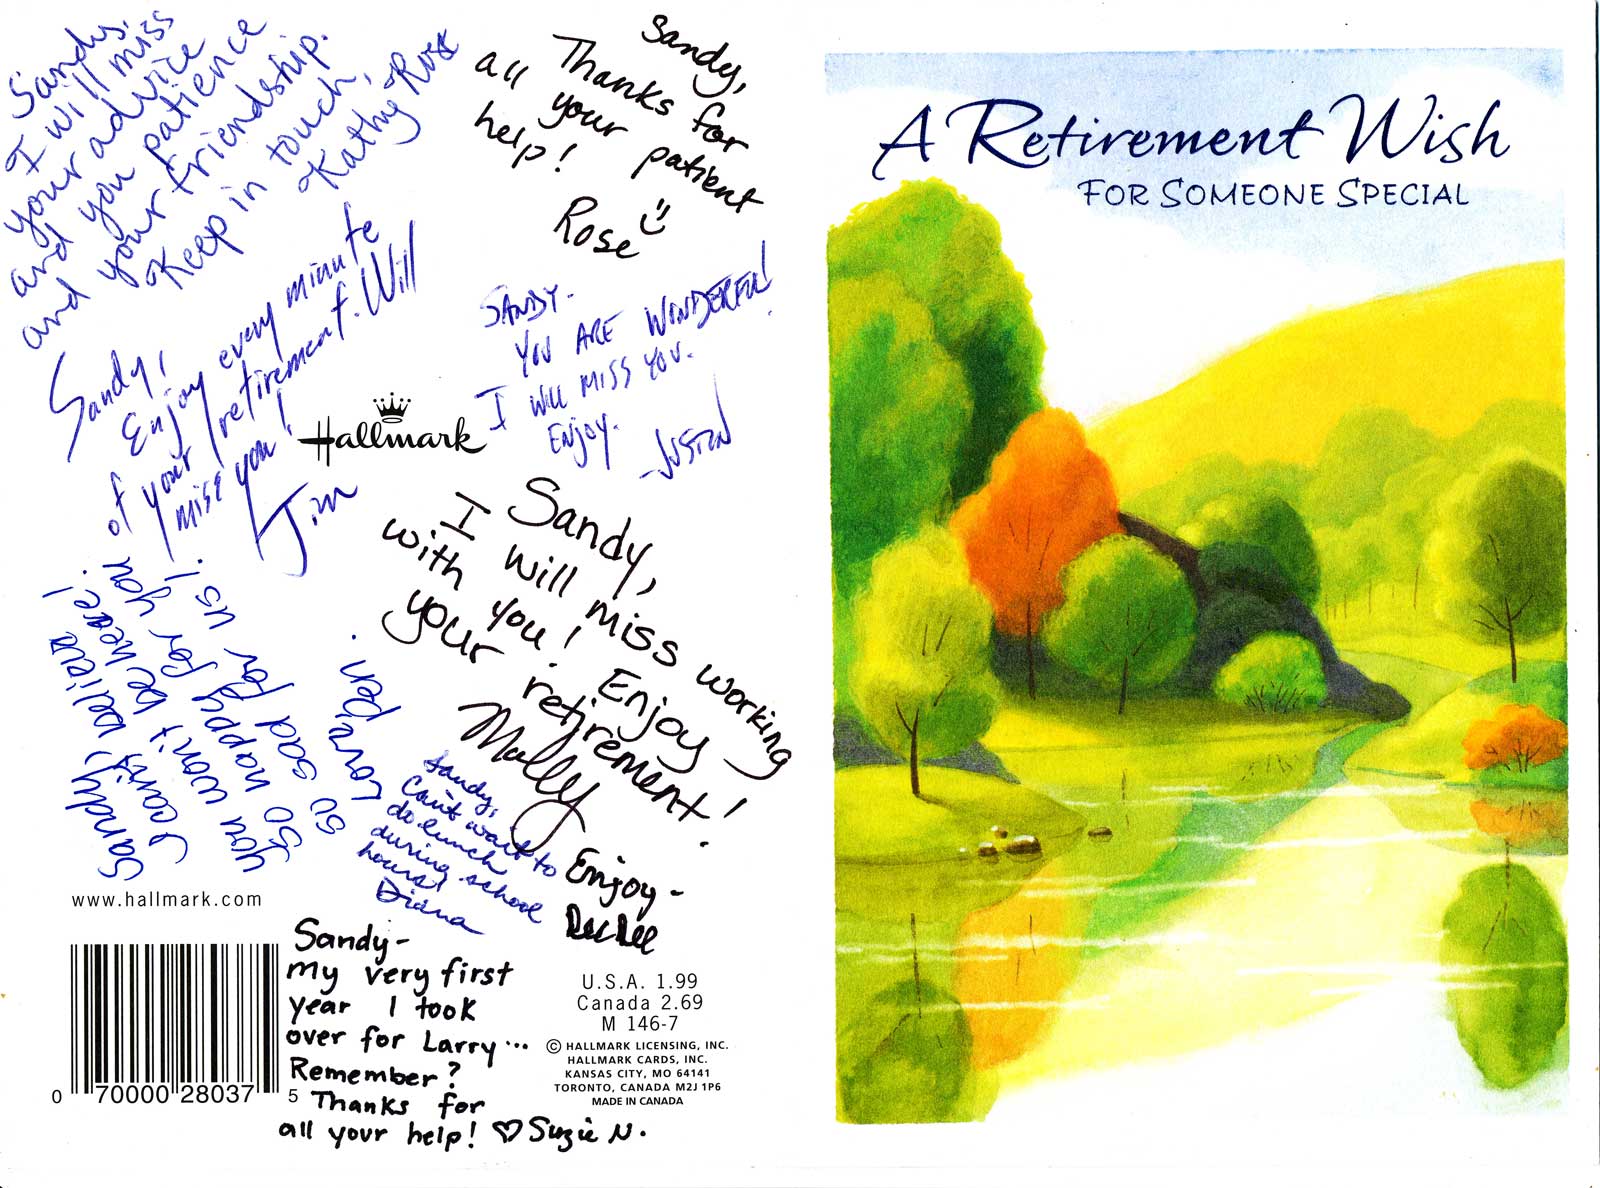 Sandy,
I will miss
your advice
and you patience
and your friendship.
Keep in touch,
Kathy Rose
Sandy,
Thanks for
all your patient
help!
Rose
Sandy,
Enjoy every minute
of your retirement. Will
miss you!
Jim
SANDY-
YOU ARE WONDERFUL!
I WILL MISS YOU.
ENJOY.
-JUSTIN
Hallmark
Sandy,
I will miss working
with you! Enjoy
your retirement!
Molly
Sandy,
I can't believe
you won't be here!
So happy for you.
so sad for us!
Love, Pen.
Sandy,
Can't want to
do lunch
during school
hours!
Diana
Enjoy-
Dee Dee
www.hallmark.com
0 70000 28037 5
Sandy-
My very first
year I took
over for Larry...
Remember?
Thanks for
all your help! ♡ Suzie N.
U.S.A. 1.99
Canada 2.69
M 146-7
© HALLMARK LICENSING, INC.
HALLMARK CARDS, INC.
KANSAS CITY, MO 64141
TORONTO, CANADA M2J 1P6
MADE IN CANADA
A Retirement Wish
FOR SOMEONE SPECIAL